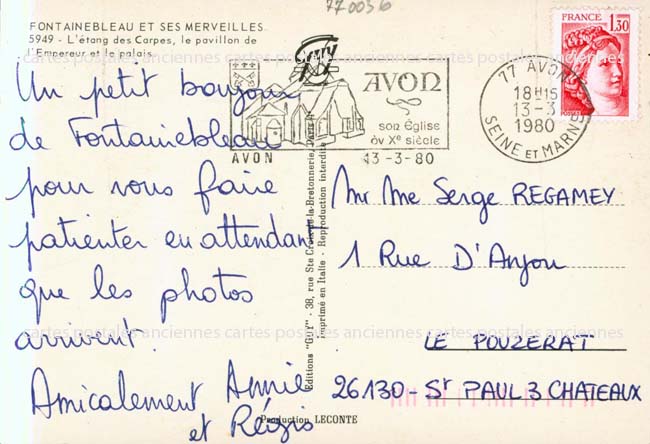 770036
FONTAINEBLEAU ET SES MERVEILLES
5949 - L'étang des Carpes, le pavillon de
l'Empereur et le palais
Un petit bonjour
de Fontainebleau
pour vous faire
patienter en attendant
que les photos
arrivent.
Amicalement Annie
et Régis
AVON
AVON
son église
du Xe siècle
13-3-80
77 AVON
18H15
13-3
1980
SEINE ET MARNE
FRANCE
1,30
POSTES
Editions "GUY" - 38, rue Ste Croix-de-la-Bretonnerie, Paris 4e
Imprimé en Italie - Reproduction interdite
Mr Me Serge REGAMEY
1 Rue D'Anjou
LE POUZERAT
26130 - St PAUL 3 CHATEAUX
Production LECONTE
cartes postales anciennes cartes postales anciennes cartes postales anciennes
cartes postales anciennes cartes postales anciennes cartes postales anciennes